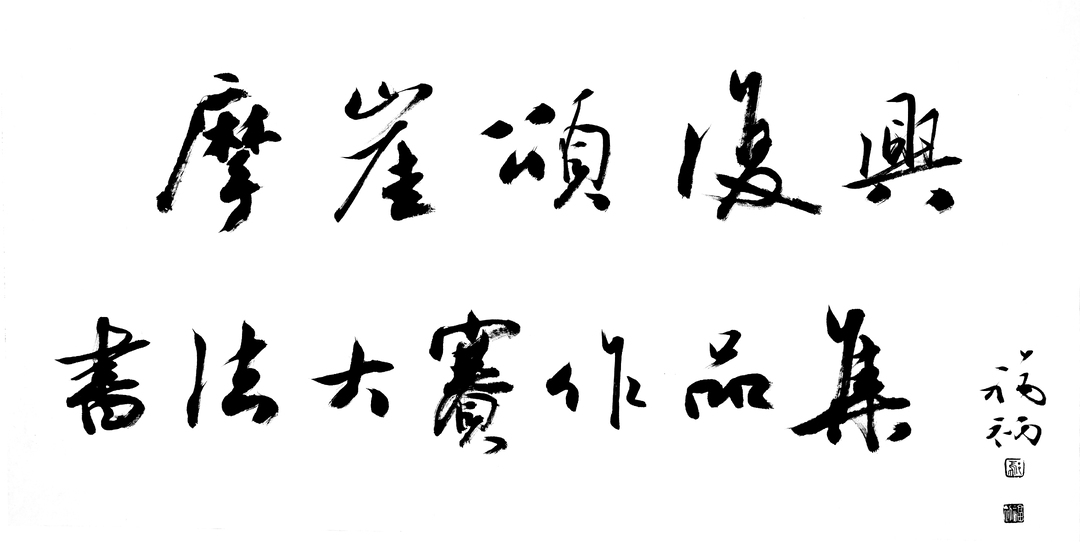 摩崖頌復興
書法大賽作品集